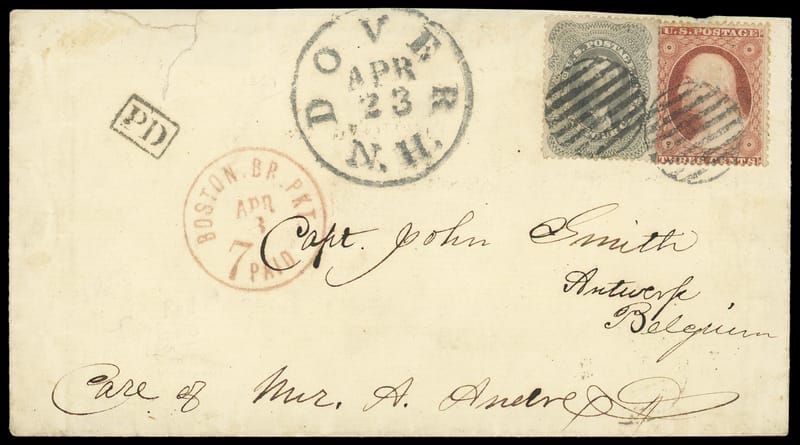 DOVER
APR
23
N.H.
U.S. POSTAGE
U.S. POSTAGE
THREE CENTS
PD
BOSTON. BR. PKT
APR
7 PAID
Capt. John Smith
Antwerp
Belgium
Care of Mr. A. Andre